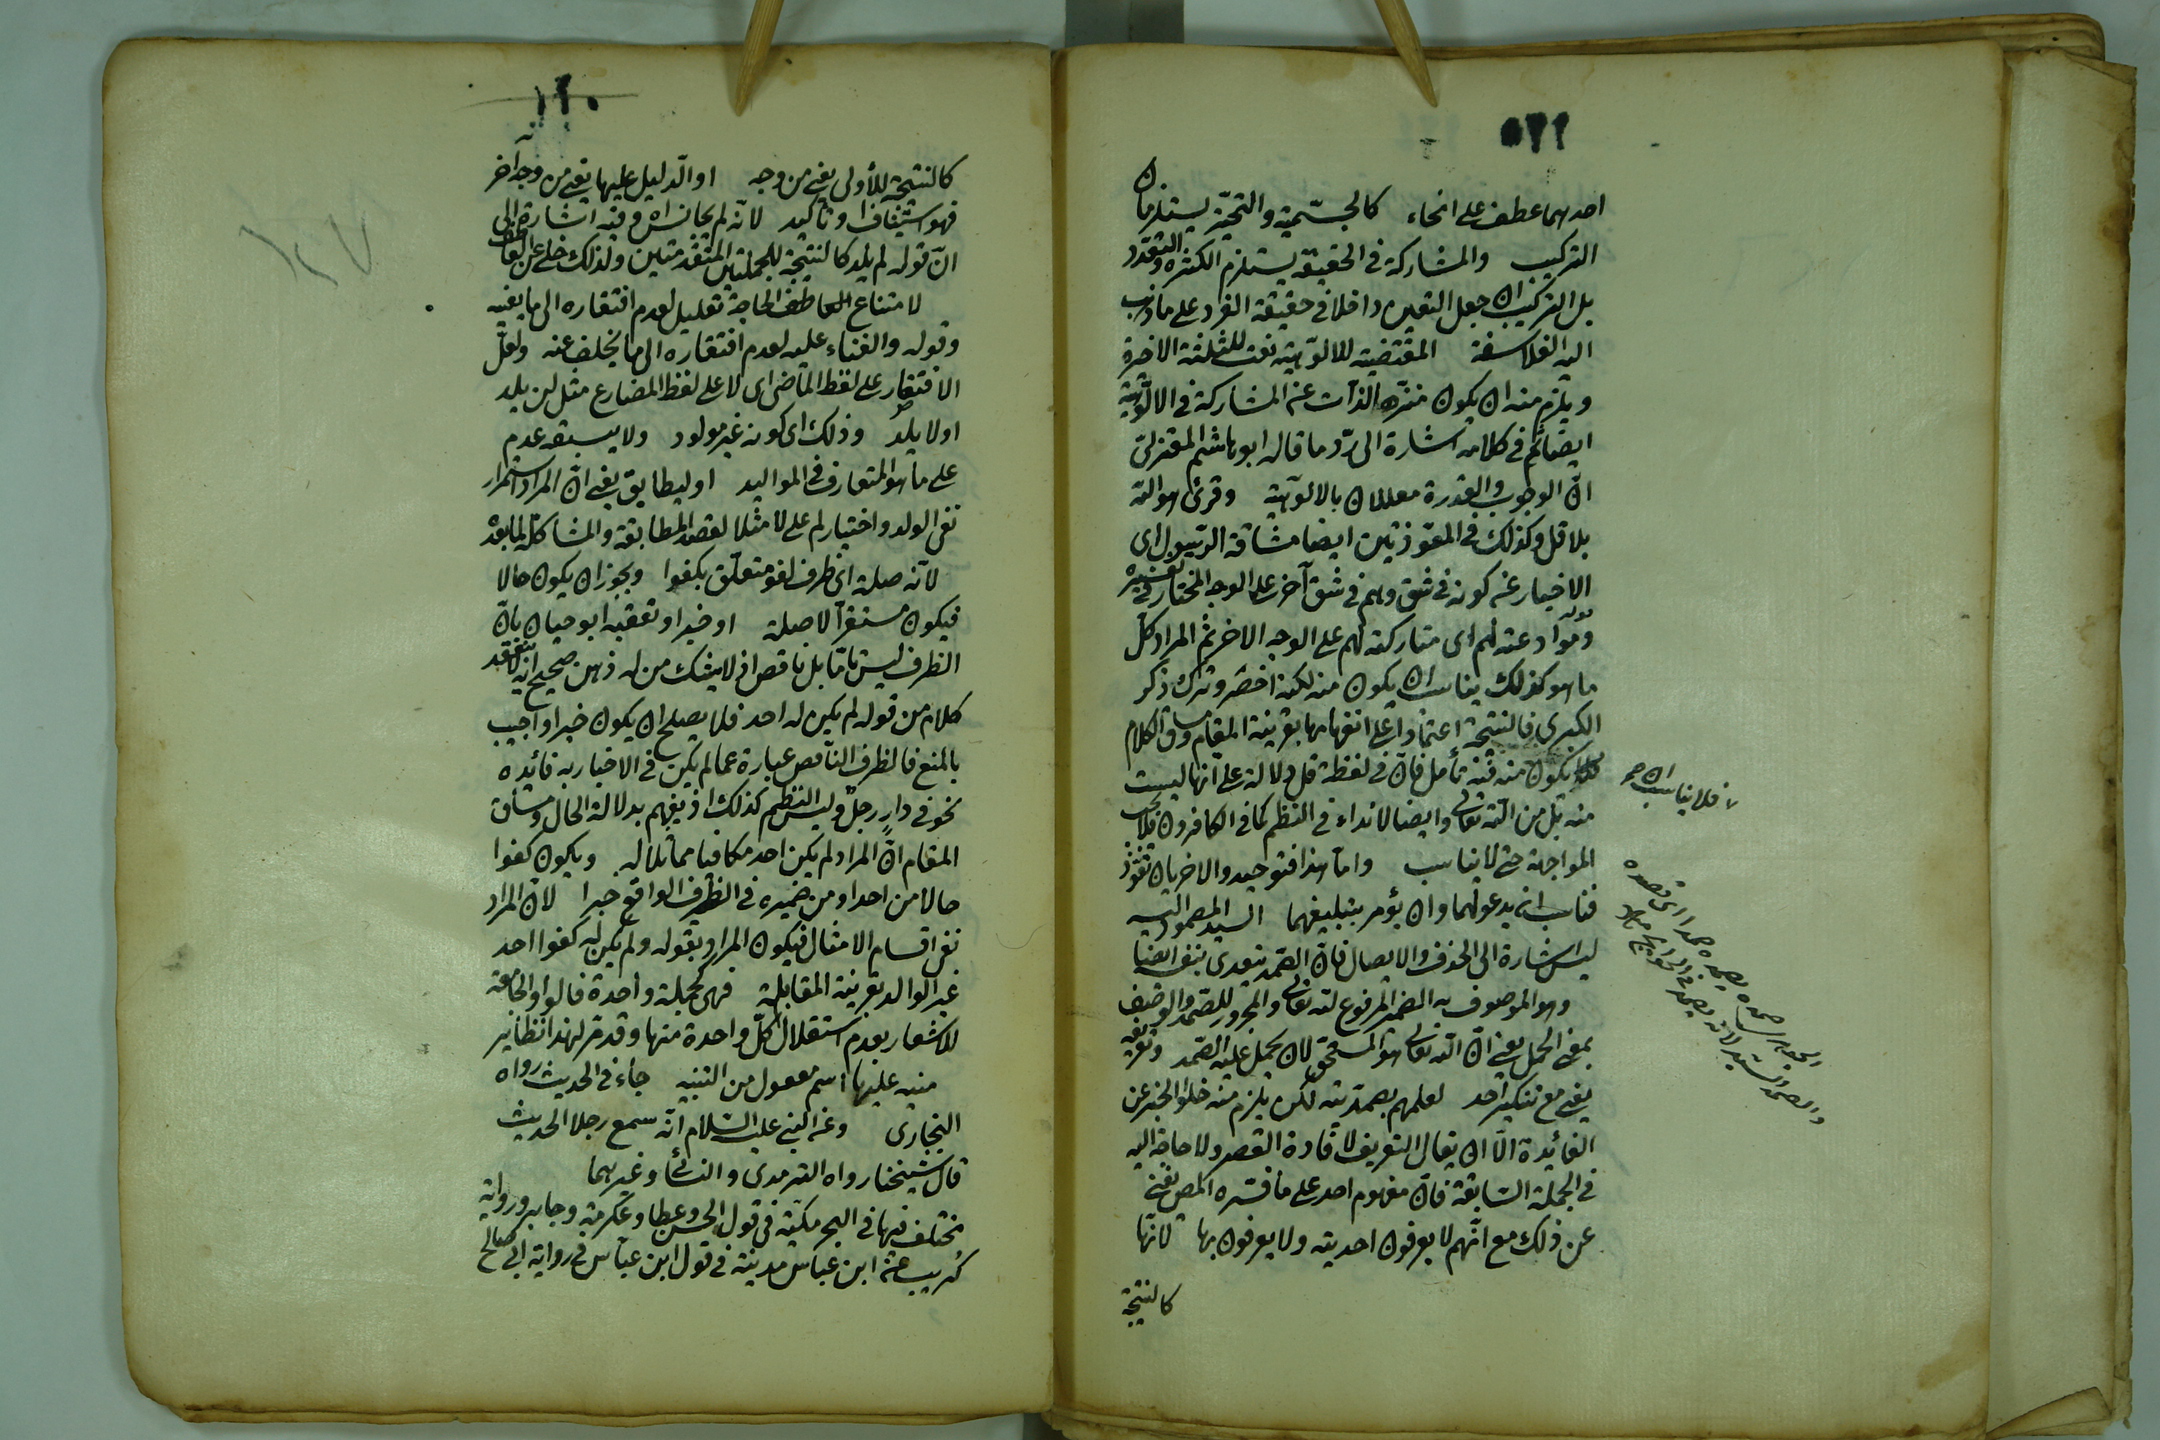 ٥٢٢
احدهما عطف على انحاء كالجسّمية والتحيّز يستلزمان
التركيب والمشاركة فى الحقيقة يستلزم الكثرة والتعدّد
بل التركيب ان جعل التعين داخلا فى حقيقة الفرد على ما ذهب
اليه الفلاسفة المقتضية للالوّهيّة نعت للثلثة الاخيرة
ويلزم منه ان يكون منزّه الذّات عنه المشاركة فى الالوّهيّة
ايضا ثم فى كلامه اشارة الى ردّ ما قاله ابو هاشم المعتزلىّ
انّ الوجوب والقدرة معللان بالالوّهيّة وقرئ هو الله
بلا قل وكذلك فى المعوّذتين ايضا مشاقة الرّسول اى
الاخبار عنه كونه فى شق وهم فى شق آخر على الوجه المختار فى تفسيره
وموادعته لهم اى متاركته لهم على الوجه الاخر ثمّ المراد كلّ
ما هو كذلك يناسب ان يكون منه لكنه اختصر وترك ذكر
الكبرى فالنتيجة اعتمادا على انفهامها بقرينة المقام وسياق الكلام
يكون منه فيه تأمل فانّ فى لفظة قل دلالة على انّها ليست
منه بل من الله تعالى وايضا لا نداء فى النظم كما فى الكافرون فلا يجب
المواجهة حتى لا يناسب وامّا هذا فتوحيد والاخريان تعوّذ
فناسب ان يدعو لهما وان يؤمر بتبليغهما السيد المصمود اليه
اشارة الى الحذف والايصال فانّ الصّمد يتعدى بنفسه ايضا
وهو الموصوف به الضمير المرفوع لله تعالى والمجرور للصّمد والوصف
بمعنى الحمل يعنى انّ الله تعالى هو المستحق لان يحمل عليه الصّمد وتعريفه
يعنى مع تنكير احد لعلمهم بصمديّته لكن يلزم منه خلوّ الخبر عن
الفائدة الّا ان يقال التعريف لافادة القصر ولا حاجة اليه
فى الجملة السّابقة فانّ مفهوم احد على ما فسّره المص يغنى
عن ذلك مع انّهم لا يعرفون احديته ولا يعرفون بها لانّها
كالنتيجة
فلا يناسب ان صح
١٢٠
كالنتيجة للأولى يعنى من وجه او الدّليل عليها يعنى من وجه آخر
فهو استيناف او تأكيد لانّه لم يجانس اه وفيه اشارة الى
انّ قوله لم يلد كالنتيجة للجملتين المتقدّمتين ولذلك خلى عن العاطف
لامتناع الحاجة تعليل لعدم افتقاره الى ما يعينه
وقوله والفناء عليه لعدم افتقاره الى ما يخلف عنه ولعلّ
الافتقار على لفظ الماضى اى لا على لفظ المضارع مثل لن يلد
او لا يلد وذلك اى كونه غير مولود ولا يسبقه عدم
على ما هو المتعارف فى المواليد او ليطابق يعنى انّ المراد استمرار
نفى الولد واختيار لم على لا مثلا لقصد المطابقة والمشاكلة لما بعده
لانّه صلة اى ظرف لغو متعلّق بكفوا ويجوز ان يكون حالا
فيكون مستقرّا لا صلة او خبرا وتعقبه ابو حيان بانّ
الظرف ليس تامّا بل ناقص اذ لا يشك من له ذهن صحيح انّه لا ينعقد
كلام من قوله لم يكن له احد فلا يصلح ان يكون خبرا واجيب
بالمنع فالظرف الناقص عبارة عما لم يكن فى الاخبار به فائدة
نحو فى دار رجلٌ وليس النظم كذلك اذ يفهم بدلالة الحال ومساق
المقام انّ المراد لم يكن احد مكافيا مماثلا له ويكون كفوا
حالا من احد او من ضميره فى الظرف الواقع خبرا لانّ المراد
نفى اقسام الامثال فيكون المراد بقوله ولم يكن له كفوا احد
غير الوالد بقرينة المقابلة فهى كجملة واحدة فالواو الجامعة
للاشعار بعدم استقلال كلّ واحدة منها وقد مرّ لهذا نظاير
منبه عليها اسم مفعول من التنبيه جاء فى الحديث رواه
البخارى وعن النبى عليه السّلام انّه سمع رجلا الحديث
قال شيخنا رواه الترمذى والنسائى وغيرهما
مختلف فيها فى البحر مكيّة فى قول الحسن وعطا وعكرمة وجابر ورواية
كريب عن ابن عبّاس مدنيّة فى قول ابن عبّاس فى رواية ابى صالح